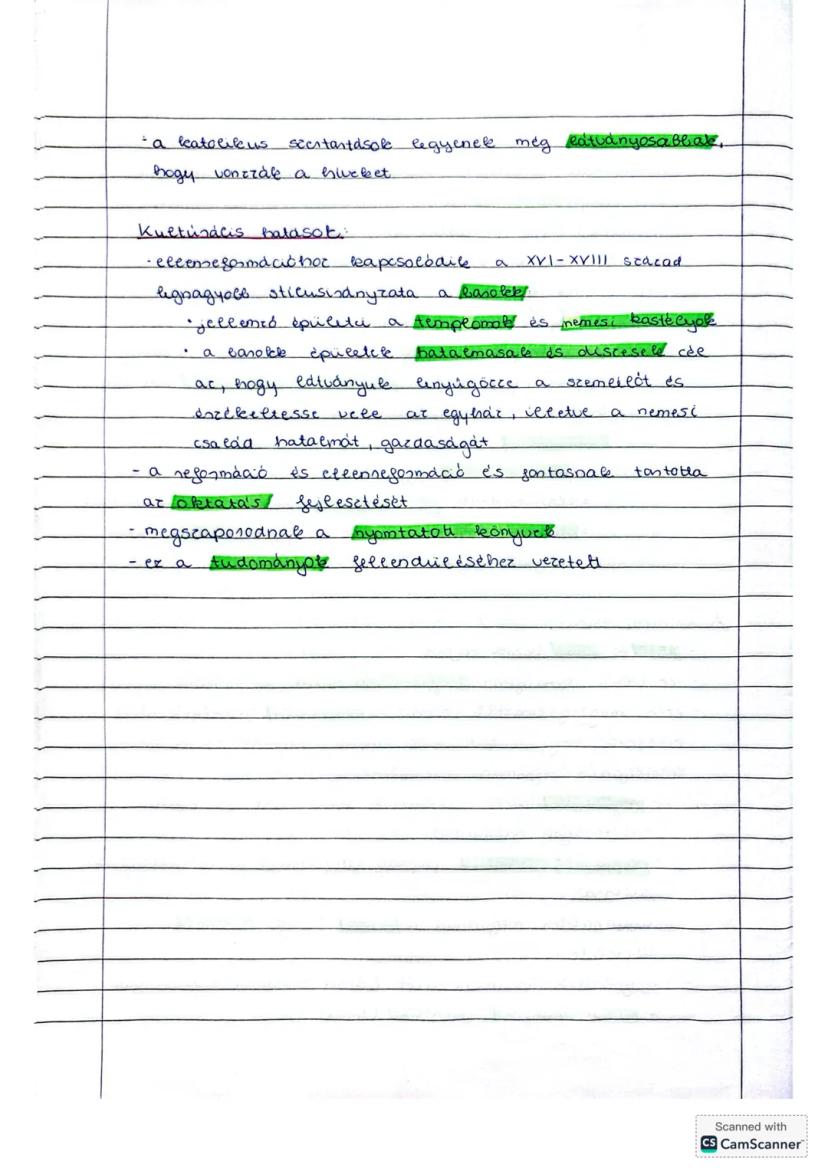 - a katolikus szertartások legyenek még látványosabbak,
hogy vonzzák a híveket
Kulturális hatások:
- ellenreformációhoz kapcsolódik a XVI-XVIII század
legnagyobb stílusirányzata a barokk
• jellemző épületei a templomok és nemesi kastélyok
• a barokk épületek hatalmasak és díszesek cél
az, hogy látványuk lenyűgözze a szemlélőt és
érzékeltesse vele az egyház, illetve a nemesi
család hatalmát, gazdaságát
- a reformáció és ellenreformáció és fontosnak tartotta
az oktatás fejlesztését
- megszaporodnak a nyomtatott könyvek
- ez a tudományok fellendüléséhez vezetett
Scanned with
CS CamScanner